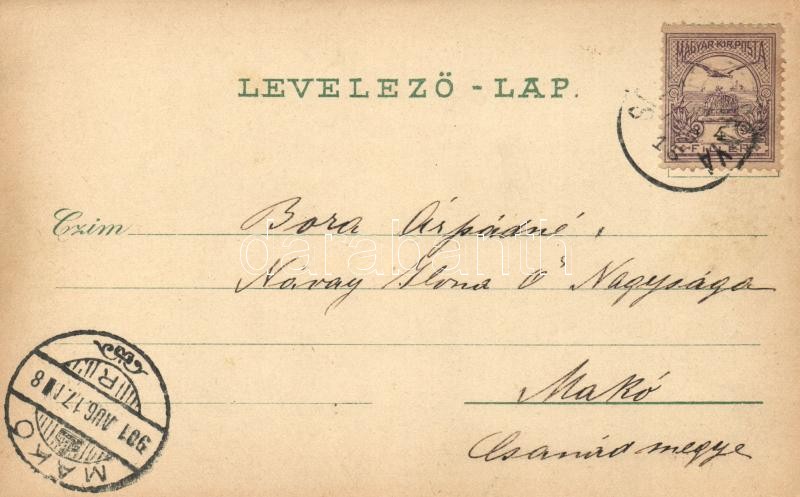 LEVELEZŐ - LAP.
MAGYAR KIR. POSTA
FILLÉR
Czim Bora Árpádné,
Návay Ilona Ő Nagysága
Makó
Csanád megye
darabanth
MAKÓ
901 AUG. 17.
8
R